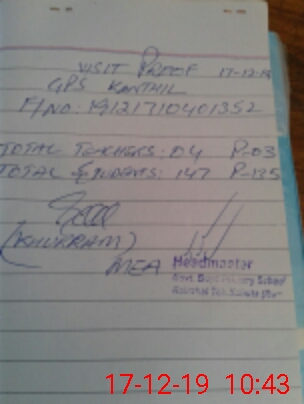 VISIT PROOF 17-12-19
GPS KANTHIL
F/NO: 19121710401352
TOTAL TEACHERS: 04 P-03
TOTAL STUDENTS: 147 P-125
(KHURRAM)
MEA
Headmaster
Govt. Boys Primary School
17-12-19 10:43